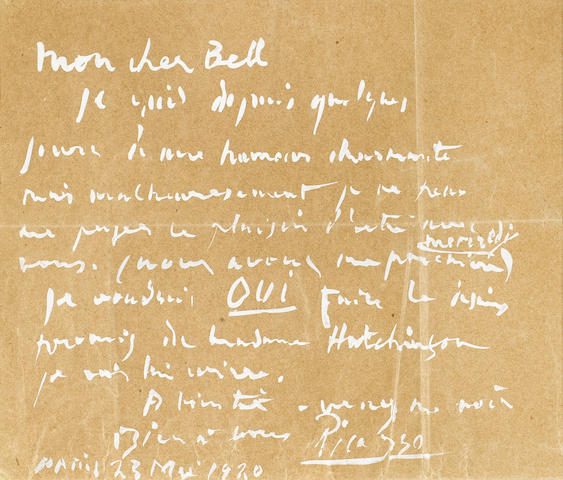 mon cher Bell
je suis depuis quelques
jours d'une humeur charmante
mais malheureusement je ne peux
me payer le plaisir d'être avec
mercredi
vous. (nous avons une
je voudrais OUI faire le dessin
promis de madame Hutchinson
je vais lui écrire.
A bientôt - venez me voir
Bien à vous Picasso
PARIS 23 Mai 1920